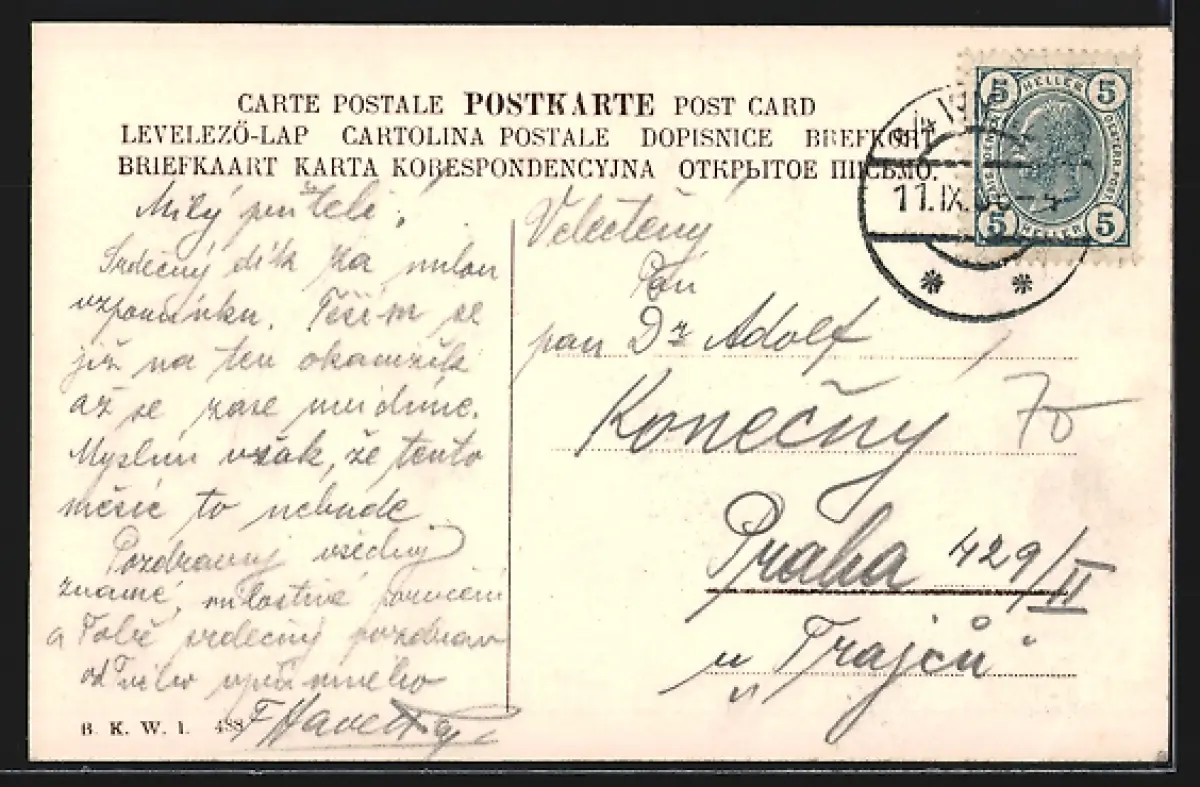 CARTE POSTALE POSTKARTE POST CARD
LEVELEZŐ-LAP CARTOLINA POSTALE DOPISNICE BREFKORT
BRIEFKAART KARTA KORESPONDENCYJNA ОТКРЫТОЕ ПИСЬМО.
5 HELLER 5
5 HELLER 5
11.IX.
Milý příteli!
Srdečný dík za milou
vzpomínku. Těším se
již na ten okamžik
až se zase uvidíme.
Myslím však, že tento
měsíc to nebude
Pozdravuj všechny
známé, milostivé poručení
a Tobě srdečný pozdrav
od Tvého upřímného
B. K. W. I. 488
Velectěný
Pán
pan Dr Adolf
Konečný
70
Praha 429/II
u „Trajců“